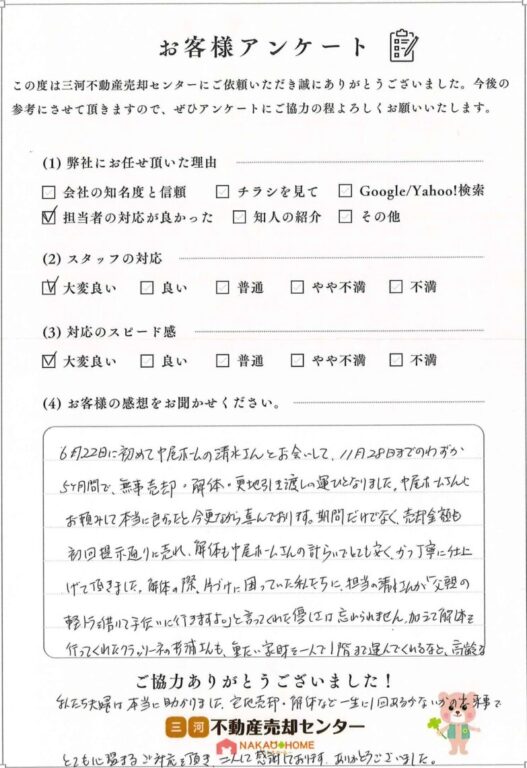 お客様アンケート
この度は三河不動産売却センターにご依頼いただき誠にありがとうございました。今後の
参考にさせて頂きますので、ぜひアンケートにご協力の程よろしくお願いいたします。
(1) 弊社にお任せ頂いた理由
会社の知名度と信頼 チラシを見て Google/Yahoo!検索
担当者の対応が良かった 知人の紹介 その他
(2) スタッフの対応
大変良い 良い 普通 やや不満 不満
(3) 対応のスピード感
大変良い 良い 普通 やや不満 不満
(4) お客様の感想をお聞かせください。
6月22日に初めて中尾ホームの清水さんとお会いして、11月28日までのわずか
5ヶ月間で、無事売却・解体・更地引き渡しの運びとなりました。中尾ホームさんに
お頼みして本当に良かったと今更ながら喜んでおります。期間だけでなく、売却金額も
初回提示通りに売れ、解体も中尾ホームさんの計らいでとても安く、かつ丁寧に仕上
げて頂きました。解体の際、片づけに困っていた私たちに、担当の清水さんが「父親の
軽トラを借りて手伝いに行きますよ。」と言ってくれた優しさは忘れられません。加えて解体を
行ってくれたクラッソーネの さんも、重たい家財を一人で1階まで運んでくれるなど、高齢な
ご協力ありがとうございました！
私たち夫婦は本当に助かりました。宅地売却・解体など一生に1回あるかないかの大事で
三河不動産売却センター
NAKAO HOME
とても心温まるご対応を頂き、二人して感謝しております。ありがとうございました。